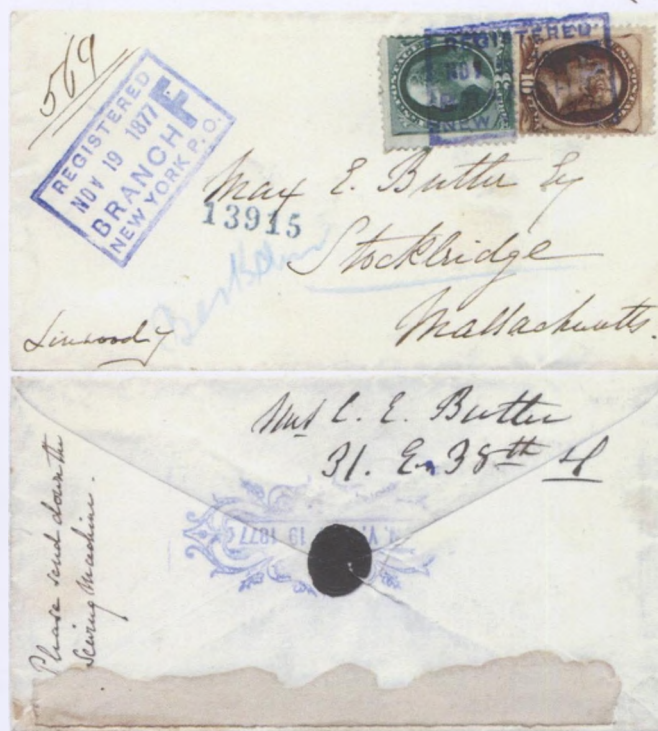 569
REGISTERED
NOV 19 1877
BRANCH F
NEW YORK P.O.
REGISTERED
NOV
NEW
Max E. Butler Esq
13915
Stockbridge
Massachusetts.
Linwood
Mrs C. E. Butler
31. E. 38th St
Please send down the
Sewing Machine.
N.Y. 19 1877